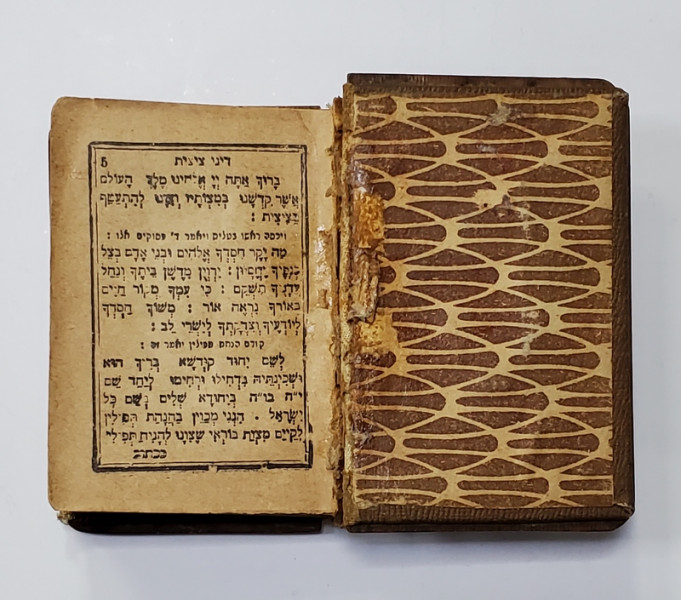 דיני ציצית 5
בָּרוּךְ אַתָּה יְיָ אֱלֹהֵינוּ מֶלֶךְ הָעוֹלָם
אֲשֶׁר קִדְּשָׁנוּ בְּמִצְוֹתָיו וְצִוָּנוּ לְהִתְעַטֵּף
בַּצִּיצִית :
ויכסה ראשו בטלית ויאמר ד׳ פסוקים אלו :
מַה יָּקָר חַסְדְּךָ אֱלֹהִים וּבְנֵי אָדָם בְּצֵל
כְּנָפֶיךָ יֶחֱסָיוּן : יִרְוְיֻן מִדֶּשֶׁן בֵּיתֶךָ וְנַחַל
עֲדָנֶיךָ תַשְׁקֵם : כִּי עִמְּךָ מְקוֹר חַיִּים
בְּאוֹרְךָ נִרְאֶה אוֹר : מְשׁוֹךְ חַסְדְּךָ
לְיוֹדְעֶיךָ וְצִדְקָתְךָ לְיִשְׁרֵי לֵב :
קודם הנחת תפילין יאמר זה :
לְשֵׁם יִחוּד קוּדְשָׁא בְּרִיךְ הוּא
וּשְׁכִינְתֵּיהּ בִּדְחִילוּ וּרְחִימוּ לְיַחֵד שֵׁם
י״ה בו״ה בְּיִחוּדָא שְׁלִים בְּשֵׁם כָּל
יִשְׂרָאֵל . הִנְנִי מְכַוֵּין בַּהֲנָחַת תְּפִילִין
לְקַיֵּם מִצְוַת בּוֹרְאִי שֶׁצִּוָּנוּ לְהָנִיחַ תְּפִילִין
ככתוב